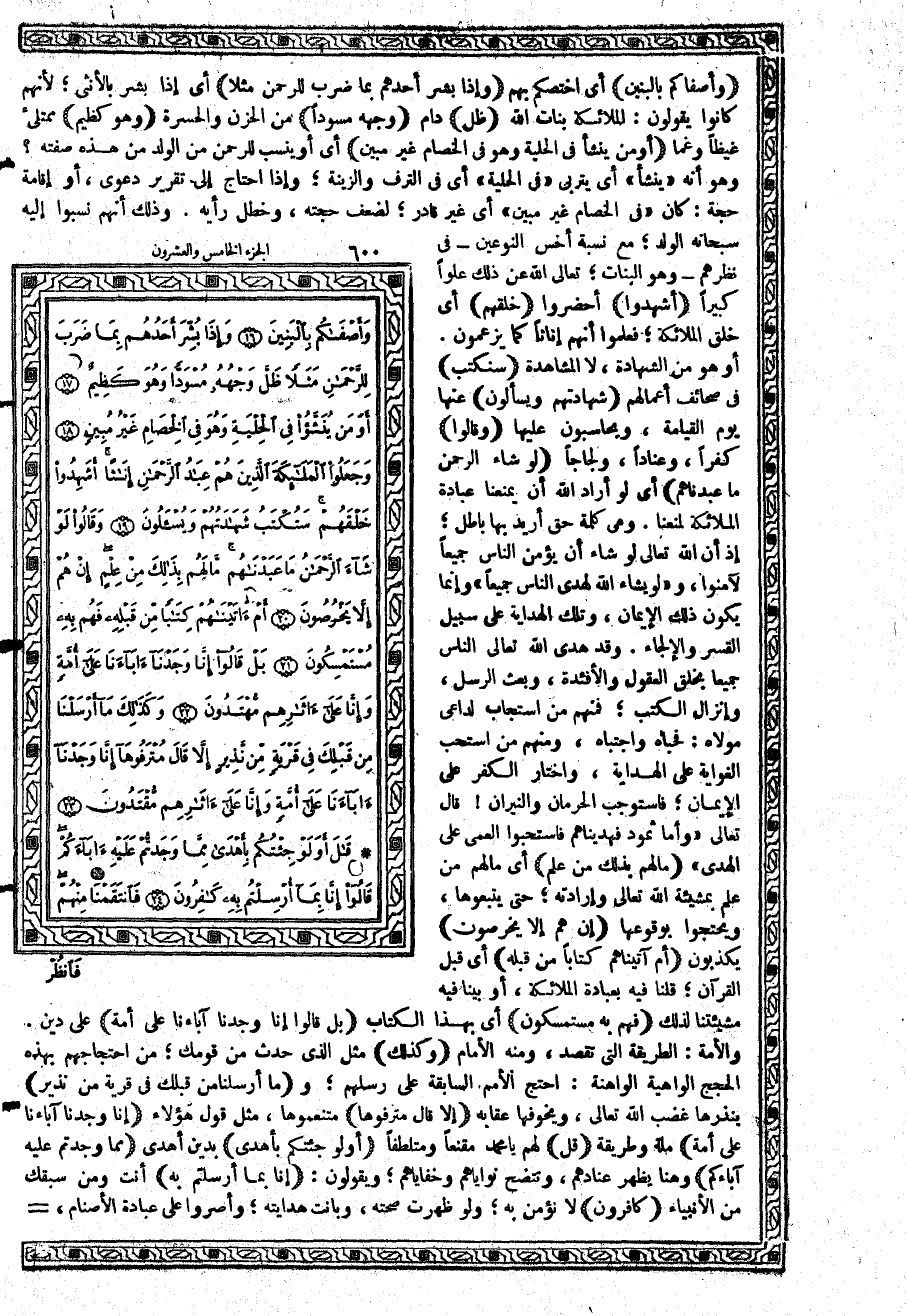 (وأصفاكم بالبنين) أى اختصكم بهم (وإذا بشر أحدهم بما ضرب للرحمن مثلا) أى إذا بشر بالأنثى ؛ لأنهم
كانوا يقولون : الملائكة بنات الله (ظل) دام (وجهه مسوداً) من الحزن والحسرة (وهو كظيم) ممتلئ
غيظاً وغما (أومن ينشأ فى الحلية وهو فى الخصام غير مبين) أى أوينسب للرحمن من الولد من هـذه صفته ؟
وهو أنه «ينشأ» أى يتربى «فى الحلية» أى فى الترف والزينة ؛ وإذا احتاج إلى تقرير دعوى ، أو إقامة
حجة : كان «فى الخصام غير مبين» أى غير قادر ؛ لضعف حجته ، وخطل رأيه . وذلك أنهم نسبوا إليه
سبحانه الولد ؛ مع نسبة أخس النوعين – فى
نظرهم – وهو البنات ؛ تعالى الله عن ذلك علواً
كبيراً (أشهدوا) أحضروا (خلقهم) أى
خلق الملائكة ؛ فعلموا أنهم إناثاً كما يزعمون .
أو هو من الشهادة ، لا المشاهدة (سنكتب)
فى صحائف أعمالهم (شهادتهم ويسألون) عنها
يوم القيامة ، ويحاسبون عليها (وقالوا)
كفراً ، وعناداً ، ولجاجاً (لو شاء الرحمن
ما عبدناهم) أى لو أراد الله أن يمنعنا عبادة
الملائكة لمنعنا . وهى كلمة حق أريد بها باطل ؛
إذ أن الله تعالى لو شاء أن يؤمن الناس جميعاً
لآمنوا ، و «لو يشاء الله لهدى الناس جميعاً» وإنما
يكون ذلك الإيمان ، وتلك الهداية على سبيل
القسر والإلجاء . وقد هدى الله تعالى الناس
جميعا بخلق العقول والأفئدة ، وبعث الرسل ،
وإنزال الكتب ؛ فمنهم من استجاب لداعى
مولاه : فحباه واجتباه ، ومنهم من استحب
الغواية على الهداية ، واختار الكفر على
الإيمان ؛ فاستوجب الحرمان والنيران ! قال
تعالى «وأما ثمود فهديناهم فاستحبوا العمى على
الهدى» (مالهم بذلك من علم) أى مالهم من
علم بمشيئة الله تعالى وإرادته ؛ حتى يتبعوها ،
ويحتجوا بوقوعها (إن هم إلا يخرصون)
يكذبون (أم آتيناهم كتاباً من قبله) أى قبل
القرآن ؛ قلنا فيه بعبادة الملائكة ، أو بينا فيه
مشيئتنا لذلك (فهم به مستمسكون) أى بهـذا الكتاب (بل قالوا إنا وجدنا آباءنا على أمة) على دين .
والأمة : الطريقة التى تقصد ، ومنه الأمام (وكذلك) مثل الذى حدث من قومك ؛ من احتجاجهم بهذه
الحجج الواهية الواهنة : احتج الأمم السابقة على رسلهم ؛ و (ما أرسلنا من قبلك فى قرية من نذير)
ينذرها غضب الله تعالى ، ويخوفها عقابه (إلا قال مترفوها) متنعموها ، مثل قول هؤلاء (إنا وجدنا آباءنا
على أمة) ملة وطريقة (قل) لهم يامحمد مقنعاً ومتلطفاً (أولو جئتكم بأهدى) بدين أهدى (مما وجدتم عليه
آباءكم) وهنا يظهر عنادهم ، وتتضح نواياهم وخفاياهم ؛ ويقولون : (إنا بما أرسلتم به) أنت ومن سبقك
من الأنبياء (كافرون) لا نؤمن به ؛ ولو ظهرت صحته ، وبانت هدايته ؛ وأصروا على عبادة الأصنام ، =
٦٠٠ الجزء الخامس والعشرون
وَأَصْفَىٰكُم بِٱلْبَنِينَ ١٦ وَإِذَا بُشِّرَ أَحَدُهُم بِمَا ضَرَبَ
لِلرَّحْمَٰنِ مَثَلًا ظَلَّ وَجْهُهُۥ مُسْوَدًّا وَهُوَ كَظِيمٌ ١٧
أَوَمَن يُنَشَّؤُا۟ فِى ٱلْحِلْيَةِ وَهُوَ فِى ٱلْخِصَامِ غَيْرُ مُبِينٍ ١٨
وَجَعَلُوا۟ ٱلْمَلَٰٓئِكَةَ ٱلَّذِينَ هُمْ عِبَٰدُ ٱلرَّحْمَٰنِ إِنَٰثًا أَشَهِدُوا۟
خَلْقَهُمْ سَتُكْتَبُ شَهَٰدَتُهُمْ وَيُسْـَٔلُونَ ١٩ وَقَالُوا۟ لَوْ
شَآءَ ٱلرَّحْمَٰنُ مَا عَبَدْنَٰهُم مَّا لَهُم بِذَٰلِكَ مِنْ عِلْمٍ إِنْ هُمْ
إِلَّا يَخْرُصُونَ ٢٠ أَمْ ءَاتَيْنَٰهُمْ كِتَٰبًا مِّن قَبْلِهِۦ فَهُم بِهِۦ
مُسْتَمْسِكُونَ ٢١ بَلْ قَالُوٓا۟ إِنَّا وَجَدْنَآ ءَابَآءَنَا عَلَىٰٓ أُمَّةٍ
وَإِنَّا عَلَىٰٓ ءَاثَٰرِهِم مُّهْتَدُونَ ٢٢ وَكَذَٰلِكَ مَآ أَرْسَلْنَا
مِن قَبْلِكَ فِى قَرْيَةٍ مِّن نَّذِيرٍ إِلَّا قَالَ مُتْرَفُوهَآ إِنَّا وَجَدْنَآ
ءَابَآءَنَا عَلَىٰٓ أُمَّةٍ وَإِنَّا عَلَىٰٓ ءَاثَٰرِهِم مُّقْتَدُونَ ٢٣
* قَٰلَ أَوَلَوْ جِئْتُكُم بِأَهْدَىٰ مِمَّا وَجَدتُّمْ عَلَيْهِ ءَابَآءَكُمْ
قَالُوٓا۟ إِنَّا بِمَآ أُرْسِلْتُم بِهِۦ كَٰفِرُونَ ٢٤ فَٱنتَقَمْنَا مِنْهُمْ
فَٱنظُرْ